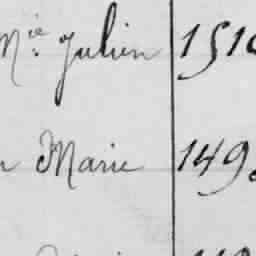 Mie. Julien 151
Marie 149